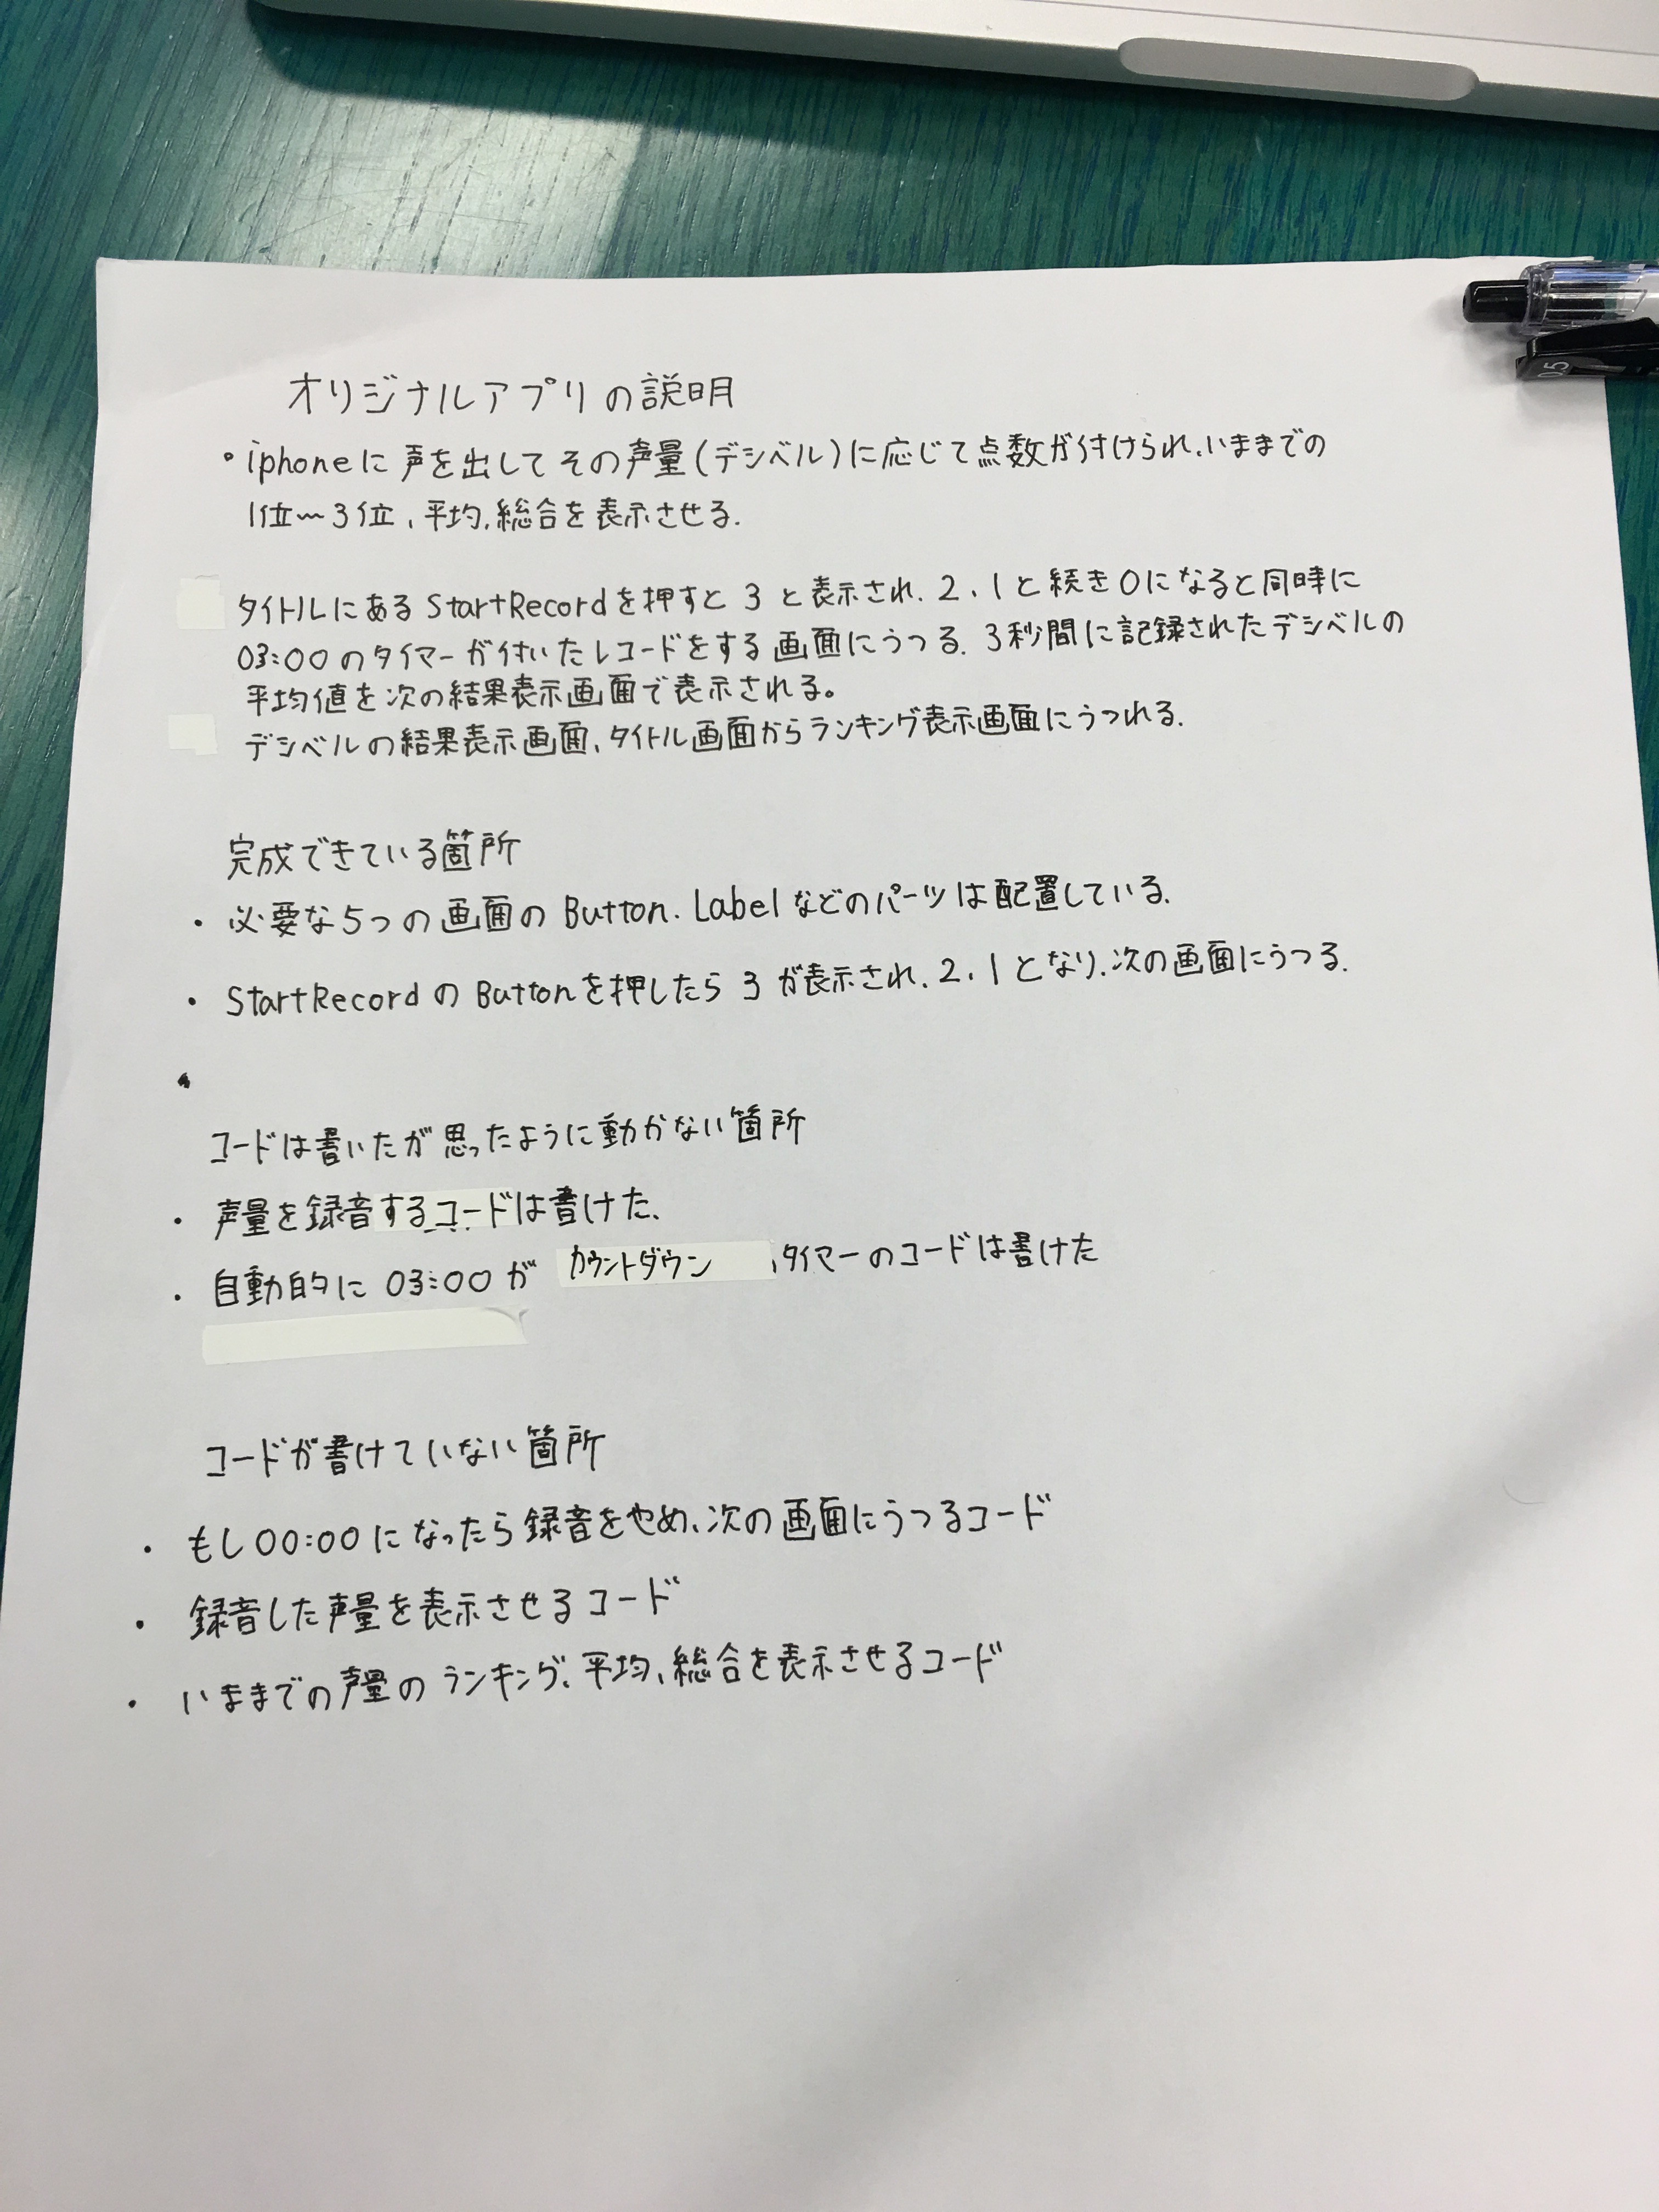 オリジナルアプリの説明
・iphoneに声を出してその声量(デシベル)に応じて点数が付けられ、いままでの
1位〜3位、平均、総合を表示させる.
タイトルにあるStartRecordを押すと3と表示され.2.1と続き0になると同時に
03:00のタイマーが付いたレコードをする画面にうつる.3秒間に記録されたデシベルの
平均値を次の結果表示画面で表示される。
デシベルの結果表示画面、タイトル画面からランキング表示画面にうつれる.
完成できている箇所
・必要な5つの画面のButton.Labelなどのパーツは配置している.
・StartRecordのButtonを押したら3が表示され.2.1となり.次の画面にうつる.
・
コードは書いたが思ったように動かない箇所
・声量を録音するコードは書けた、
・自動的に03:00がカウントダウン、タイマーのコードは書けた
コードが書けていない箇所
・もし00:00になったら録音をやめ、次の画面にうつるコード
・録音した声量を表示させるコード
・いままでの声量のランキング、平均、総合を表示させるコード
0.5